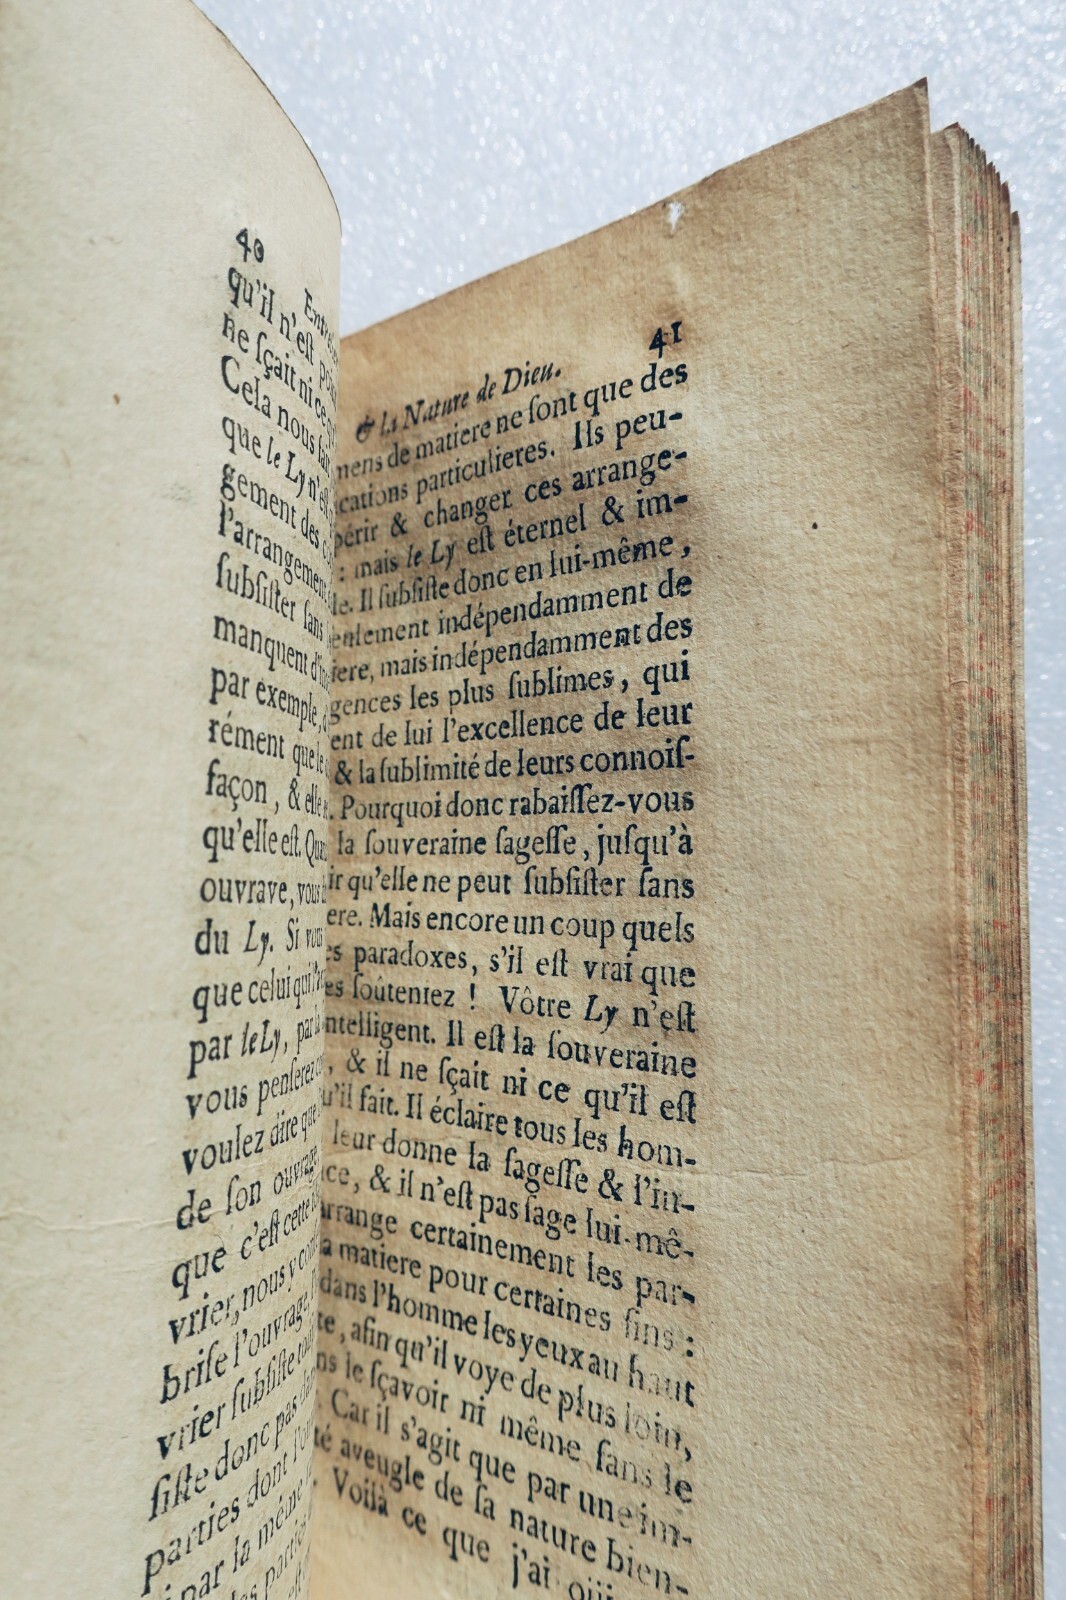 40
qu'il n'eſt
ne ſçait ni ce
Cela nous
que le Ly n'eſt
gement des
l'arrangement
ſubſiſter ſans
manquent
par exemple,
rément que le
façon, & elle
qu'elle eſt.
ouvrave, vous
du Ly. Si
que celui qui
par le Ly, par
vous penſerez
voulez dire que
de ſon ouvrage
que c'eſt cette
vrier, nous y
briſe l'ouvrage,
vrier ſubſiſte
ſiſte donc pas
parties dont
par la même
parties
& la Nature de Dieu. 41
mens de matiere ne ſont que des
cations particulieres. Ils peu-
périr & changer ces arrange-
: mais le Ly eſt éternel & im-
le. Il ſubſiſte donc en lui-même,
eulement indépendamment de
iere, mais indépendamment des
gences les plus ſublimes, qui
ent de lui l'excellence de leur
& la ſublimité de leurs connoiſ-
. Pourquoi donc rabaiſſez-vous
la ſouveraine ſageſſe, juſqu'à
ir qu'elle ne peut ſubſiſter ſans
ere. Mais encore un coup quels
es paradoxes, s'il eſt vrai que
es ſoûteniez ! Vôtre Ly n'eſt
ntelligent. Il eſt la ſouveraine
, & il ne ſçait ni ce qu'il eſt
u'il fait. Il éclaire tous les hom-
leur donne la ſageſſe & l'in-
ce, & il n'eſt pas ſage lui-mê-
arrange certainement les par-
a matiere pour certaines fins :
dans l'homme les yeux au haut
te, afin qu'il voye de plus loin,
ns le ſçavoir ni même ſans le
. Car il s'agit que par une im-
té aveugle de ſa nature bien-
. Voilà ce que j'ai oüi